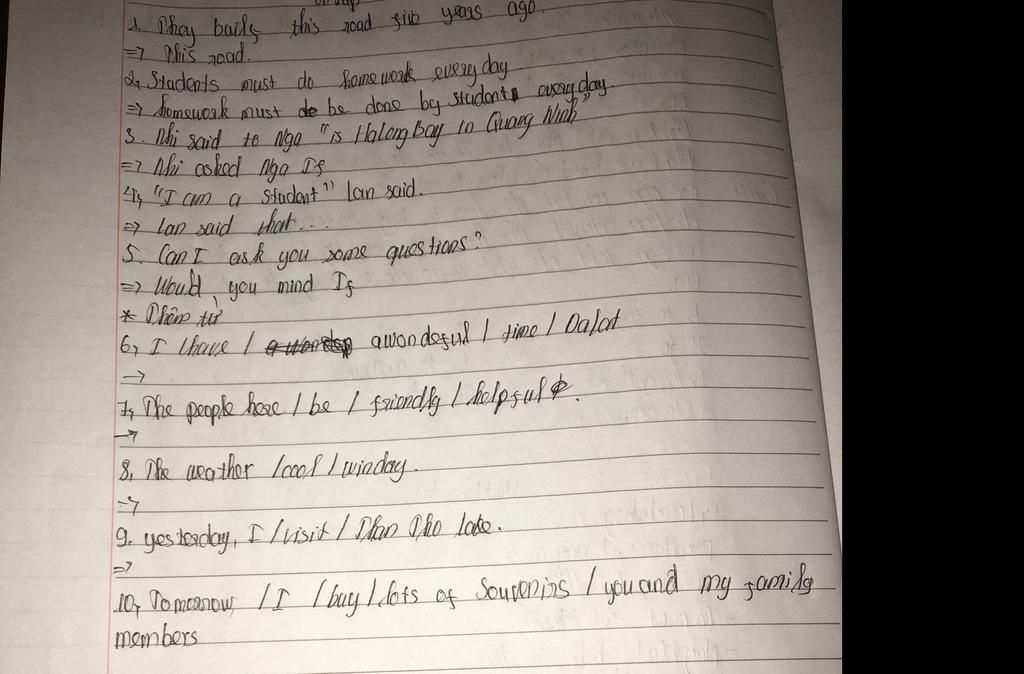 1. They built this road five years ago.
=> This road.
2, Students must do homework everyday
=> homework must be done by students everyday.
3. Nhi said to Nga "is Halong Bay in Quang Ninh"
=> Nhi asked Nga If
4, "I am a student" Lan said.
=> Lan said that...
5. Can I ask you some questions?
=> Would you mind If
* Thêm từ
6, I have / a wondeful / time / Dalat
->
7, The people here / be / friendly / helpful.
->
8, The weather / cool / winday.
->
9. yesterday, I / visit / Than Tho lake.
=>
10, Tomorrow, / I / buy / lots of Souvenirs / you and my family
members